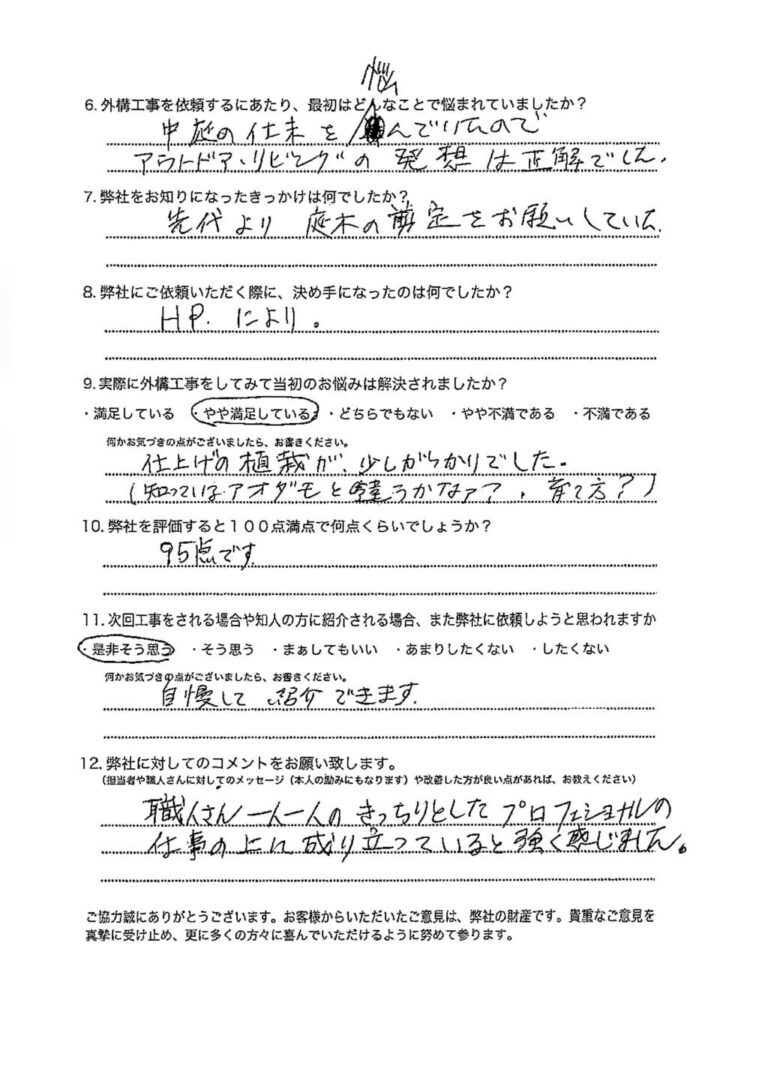 悩
6. 外構工事を依頼するにあたり、最初はどんなことで悩まれていましたか？
中庭の仕末を んでいたので
アウトドア・リビングの発想は正解でした。
7. 弊社をお知りになったきっかけは何でしたか？
先代より 庭木の剪定をお願いしていた。
8. 弊社にご依頼いただく際に、決め手になったのは何でしたか？
HP. により。
9. 実際に外構工事をしてみて当初のお悩みは解決されましたか？
・満足している ・やや満足している ・どちらでもない ・やや不満である ・不満である
何かお気づきの点がございましたら、お書きください。
仕上げの植栽が、少しがっかりでした。
(知っているアオダモと違うかなァ？、育て方？)
10. 弊社を評価すると１００点満点で何点くらいでしょうか？
95点です
11. 次回工事をされる場合や知人の方に紹介される場合、また弊社に依頼しようと思われますか
・是非そう思う ・そう思う ・まぁしてもいい ・あまりしたくない ・したくない
何かお気づきの点がございましたら、お書きください。
自慢して 紹介できます.
12. 弊社に対してのコメントをお願い致します。
（担当者や職人さんに対してのメッセージ（本人の励みにもなります）や改善した方が良い点があれば、お教えください）
職人さん一人一人のきっちりとしたプロフェショナルの
仕事の上に成り立っていると強く感じました。
ご協力誠にありがとうございます。お客様からいただいたご意見は、弊社の財産です。貴重なご意見を
真摯に受け止め、更に多くの方々に喜んでいただけるように努めて参ります。